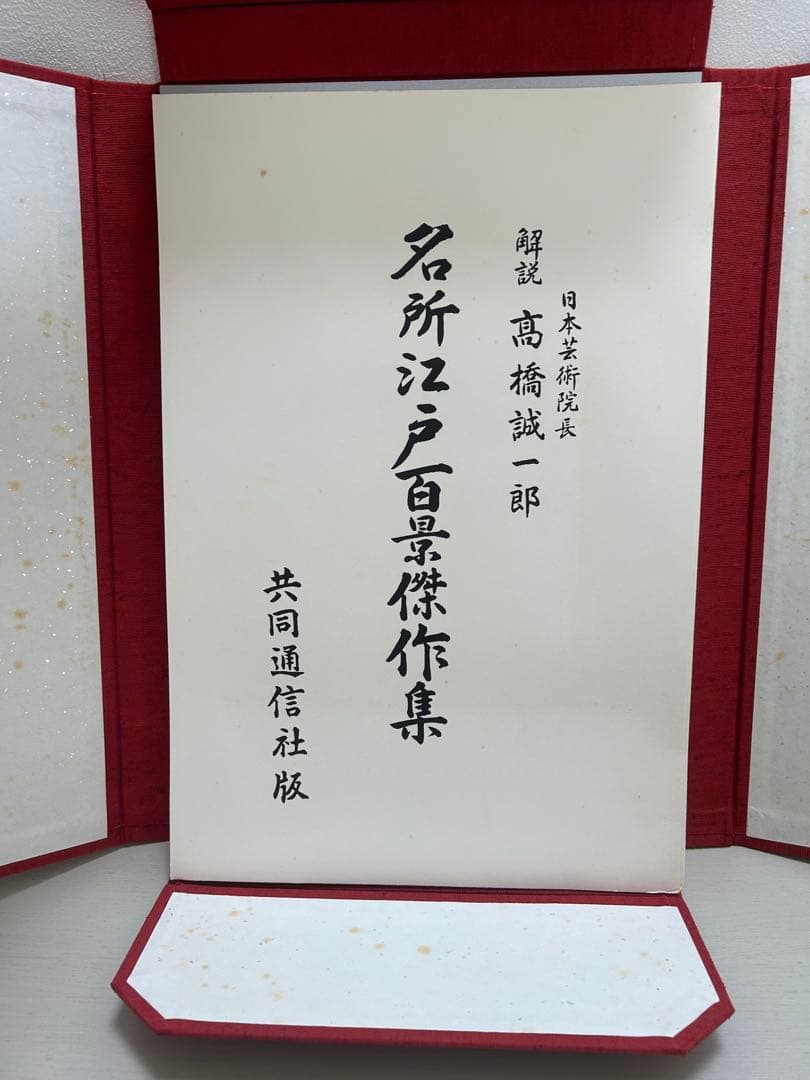 日本芸術院長
解説 高橋誠一郎
名所江戸百景傑作集
共同通信社版